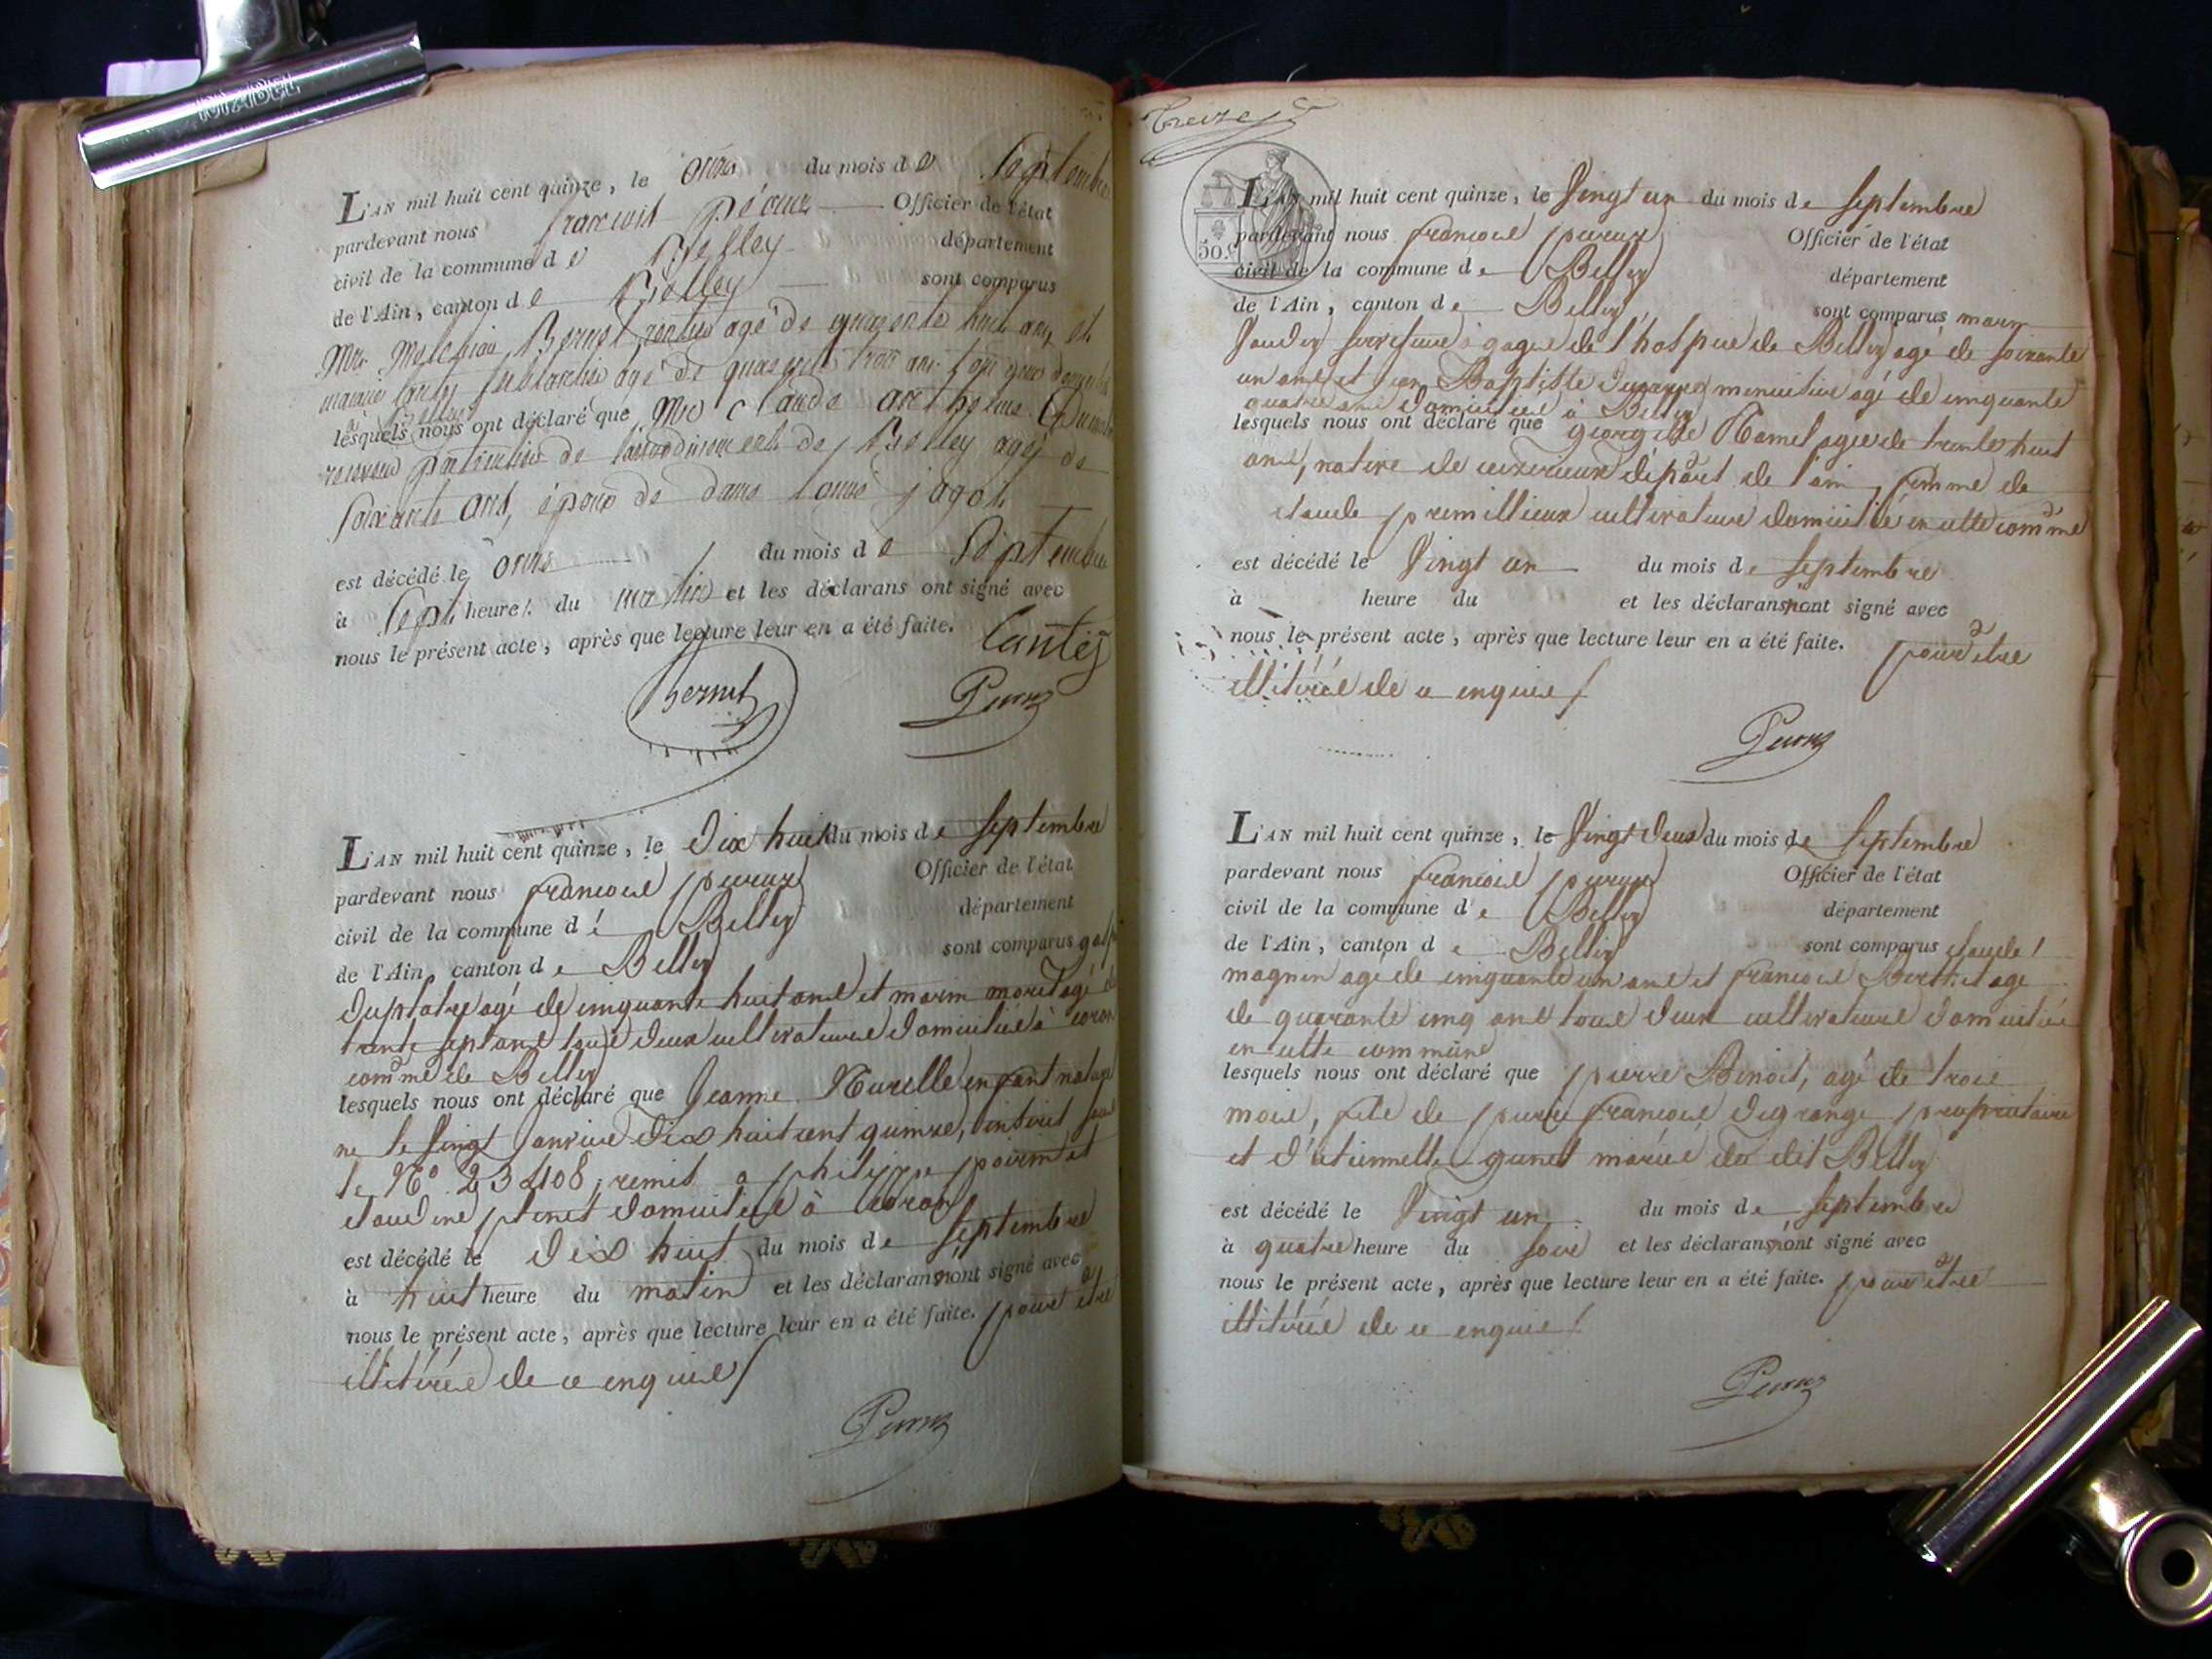 L'AN mil huit cent quinze, le onze du mois de Septembre
pardevant nous françois Officier de l'état
civil de la commune de Belley département
de l'Ain, canton de Belley sont comparus
Mr. Melchior Bernet rentier agé de quarente huit ans et
agé de quarente trois ans tous deux
lesquels nous ont déclaré que Mr claude anthelme
de l'arrondissement de Belley agé de
soixante ans, époux de dame jagot
est décédé le onze du mois de Septembre
à Sept heures du matin et les déclarans ont signé avec
nous le présent acte, après que lecture leur en a été faite.
Bernet
L'AN mil huit cent quinze, le Dix huit du mois de Septembre
pardevant nous francois Officier de l'état
civil de la commune de Belley département
de l'Ain canton de Belley sont comparus
Duplatre agé de cinquante huit ans et marin moret agé de
trente sept ans tous deux cultivateurs domiciliés à
comme de Belley
lesquels nous ont déclaré que Jeanne enfant naturel
ne le vingt Janvier dix huit cent quinze, inscrit sous
le No 23408, remit a philippe et
claudine domiciliés à
est décédé le dix huit du mois de Septembre
à huit heure du matin et les déclarans n'ont signé avec
nous le présent acte, après que lecture leur en a été faite. pour être
illitérés de ce enquis
Treize
50.c
L'AN mil huit cent quinze, le Vingt un du mois de Septembre
pardevant nous francois Officier de l'état
civil de la commune de Belley département
de l'Ain, canton de Belley sont comparus marin
à gages de l'hospice de Belley agé de soixante
un ans et jean Baptiste menuisier agé de cinquante
quatre ans domiciliés à Belley
lesquels nous ont déclaré que georgette Ramel agée de trente huit
ans, native de ceizerieux depart de l'ain, femme de
claude premillieux cultivateur domicilié en cette comme
est décédé le Vingt un du mois de Septembre
à heure du et les déclarans n'ont signé avec
nous le présent acte, après que lecture leur en a été faite. pour être
illitérés de ce enquis
L'AN mil huit cent quinze, le Vingt Deux du mois de Septembre
pardevant nous francois Officier de l'état
civil de la commune de Belley département
de l'Ain, canton de Belley sont comparus claude
magnin agé de cinquante un ans et francois Berthet agé
de quarante cinq ans tous deux cultivateurs domiciliés
en cette commune
lesquels nous ont déclaré que pierre Benoit, agé de trois
mois, fils de pierre francois Degrange propriétaire
et d'etiennette mariés du dit Belley
est décédé le Vingt un du mois de Septembre
à quatre heure du soir et les déclarans n'ont signé avec
nous le présent acte, après que lecture leur en a été faite. pour être
illitérés de ce enquis